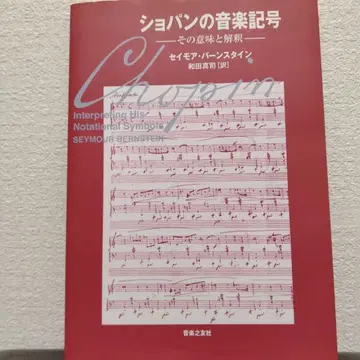 ショパンの音楽記号
—その意味と解釈—
セイモア・バーンスタイン
和田真司［訳］
Chopin
Interpreting His
Notational Symbols
SEYMOUR BERNSTEIN
音楽之友社